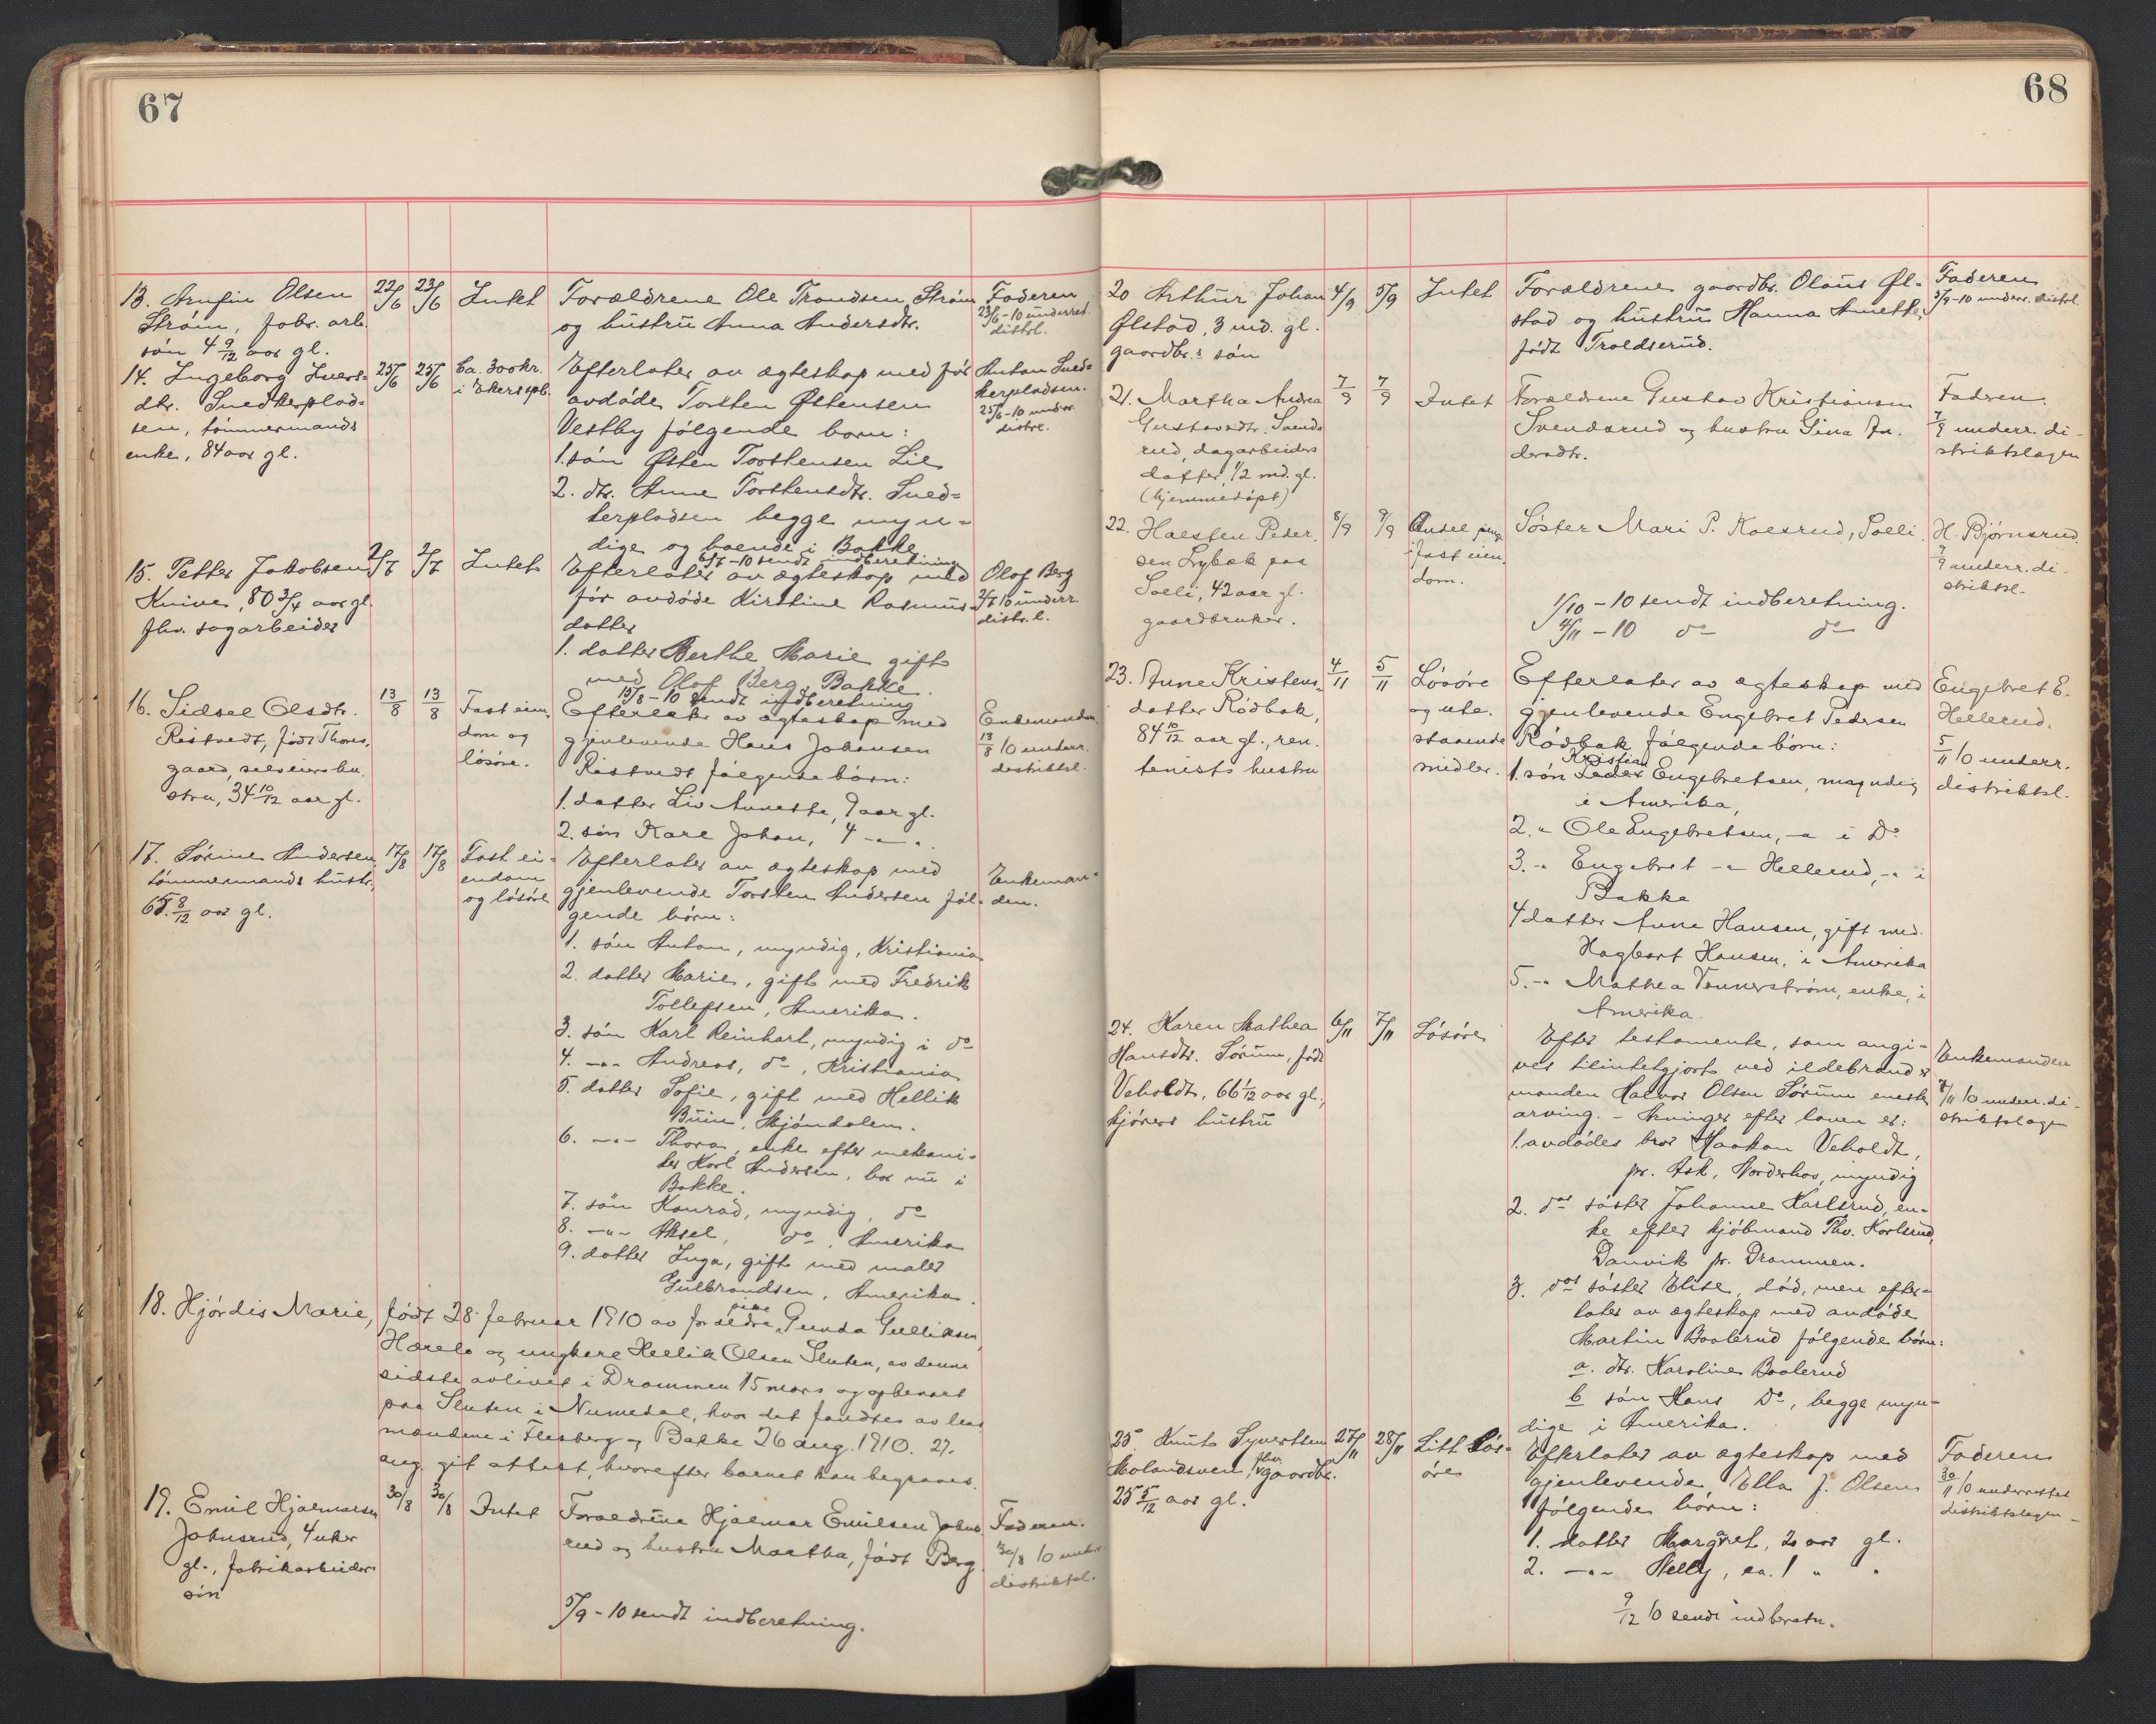 67
13. Arnfin Olsen
Strøm, fabr. arb.
søn 4 9/12 aar gl.
22/6
23/6
Intet
Forældrene Ole Trondsen Strøm
og hustru Anna Andersdtr.
Faderen
23/6-10 underret.
distrl.
14. Ingeborg Ivers-
dtr. Snedkerplad-
sen, tømmermands
enke, 84 aar gl.
25/6
25/6
Ca. 300 kr.
i Ekers spb.
Efterlater av ægteskap med før
avdøde Torsten Østensen
Vestby følgende børn:
1. søn Østen Torstensen Lie
2. dtr. Anne Torstensdtr. Sned-
kerpladsen begge myn-
dige og boende i Bakke
6/7-10 sendt indberetning
Anton Sned-
kerpladsen.
25/6-10 underr.
distrl.
15. Petter Jakobsen
Knive, 80 3/4 aar gl.
fhv. sagarbeider
2/7
2/7
Intet
Efterlater av ægteskap med
før avdøde Kirstine Rasmus-
datter
1. datter Berthe Marie gift
med Olof Berg, Bakke.
15/8-10 sendt indberetning
Olof Berg
2/7 10 underr.
distr. l.
16. Sidsel Olsdtr.
Ristvedt, født Thors-
gaard, selveiers hu-
stru, 34 10/12 aar gl.
13/8
13/8
Fast eien-
dom og
løsøre.
Efterlater av ægteskap med
gjenlevende Hans Johansen
Ristvedt følgende børn:
1. datter Liv Annette, 9 aar gl.
2. søn Kare Johan, 4 -"- .
Enkemanden.
13/8 10 underr.
distriktsl.
17. Sørine Andersen
tømmermands hustr.
65 8/12 aar gl.
17/8
17/8
Fast ei-
endom
og løsøre
Efterlater av ægteskap med
gjenlevende Torsten Andersen føl-
gende børn:
1. søn Anton, myndig, Kristiania
2. datter Marie, gift med Fredrik
Tollefsen, Amerika.
3. søn Karl Reinhart, myndig i do
4. -"- Andreas, do, Kristiania
5. datter Sofie, gift med Hellik
Buin, Mjøndalen.
6. -"- Thora, enke efter mekani-
ker Karl Andersen, bor nu i
Bakke.
7. søn Konrad, myndig, do
8. -"- Aksel, do, Amerika
9. datter Inga, gift med maler
Gulbrandsen, Amerika.
Enkeman-
den.
18. Hjørdis Marie, født 28. februar 1910 av forældre pike Gunda Gulliksen
Hærele og ungkare Hellik Olsen Sluten, av denne
sidste avlivet i Drammen 15 mars og opbevart
paa Sluten i Numedal, hvor det fandtes av lens
mændene i Flesberg og Bakke 26 aug. 1910. 27.
aug. git attest, hvorefter barnet kan begraves.
19. Emil Hjalmarsen
Johnsrud, 4 uker
gl., fabrikarbeiders
søn
30/8
30/8
Intet
Forældrene Hjalmar Emilsen Johns-
rud og hustru Martha, født Berg.
5/9-10 sendt indberetning.
Faderen.
30/8 10 underr
distriktsl.
68
20 Arthur Johan
Ølstad, 3 md. gl.
gaardbr.s søn
4/9
5/9
Intet
Forældrene gaardbr. Olaus Øl-
stad og hustru Hanna Anette,
født Troldserud.
Faderen
5/9-10 underr. distrl.
21. Martha Andrea
Gustavsdtr. Svends
rud, dagarbeiders
datter, 1/2 md. gl.
(hjemmedøpt)
7/9
7/9
Intet
Forældrene Gustav Kristiansen
Svendsrud og hustru Gina An-
dersdtr.
Faderen.
7/9 underr. di-
striktslagen
22. Halsten Peder-
sen Lybæk paa
Soeli, 42 aar gl.
gaardbruker.
8/9
9/9
fast eien-
dom.
Søster Mari P. Kolsrud, Soeli.
1/10-10 sendt indberetning.
4/11-10 do do
H. Bjørnsrud.
9/9 underr. di-
striktsl.
23. Anne Kristens-
datter Rødbak,
84 10/12 aar gl., ren-
tenists hustru
4/11
5/11
Løsøre
og ute-
staaende
midler.
Efterlater av ægteskap med
gjenlevende Engebret Pedersen
Rødbak følgende børn:
1. søn Peder Kristian Engebretsen, myndig
i Amerika,
2. " Ole Engebretsen, -" i Do
3. -" Engebret -" Hellerud, -" i
Bakke
4 datter Anne Hansen, gift med
Hagbart Hansen, i Amerika
5. -" Mathea Vennerstrøm, enke, i
Amerika
Engebret E.
Hellerud.
5/11 10 underr.
distriktsl.
24. Karen Mathea
Hansdtr. Sørum, født
Veholdt, 66 1/12 aar gl.,
kjørers hustru
6/11
7/11
Løsøre
Efter testamente, som angi-
ves tilintetgjort ved ildebrand er
manden Halvor Olsen Sørum eneste
arving. - Arvinger efter loven er:
1. avdødes bror Haakon Veholdt,
pr. Ask, Norderhov, myndig
2. dos søster Johanne Karlsrud, en-
ke efter kjøbmand Thv. Karlsrud,
Danvik pr. Drammen.
3. dos søster Elise, død, men efter-
later av ægteskap med avdøde
Martin Boolerud følgende børn:
a. dtr. Karoline Boolerud
b søn Hans Do, begge myn-
dige i Amerika.
Enkemanden
7/11 10 underr. di-
striktslagen
25. Knut Syvertsen
Molandsveen, fhv. gaardbr.
25 5/12 aar gl.
27/11
28/11
Litt løs-
øre
Efterlater av ægteskap med
gjenlevende Ella J. Olsen
følgende børn:
1. datter Margret, 2 aar gl.
2. -"- Helly, ca. 1 " "
9/12 10 sendt indberetn.
Faderen
30/11 10 underrettet
distriktslagen